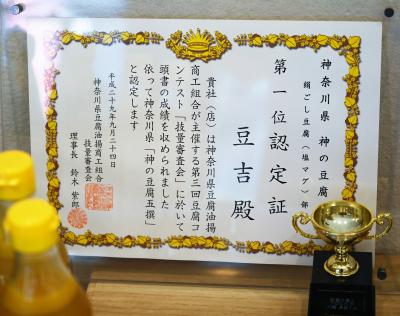 神奈川県 神の豆腐
絹ごし豆腐(塩マグ)部
第一位認定証
豆吉殿
貴社(店)は神奈川県豆腐油揚
商工組合が主催する第三回豆腐コ
ンテスト「技量審査会」に於いて
頭書の成績を収められました
依って神奈川県「神の豆腐五撰」
と認定します
平成二十九年九月二十四日
神奈川県豆腐油揚商工組合
技量審査会
理事長 鈴木